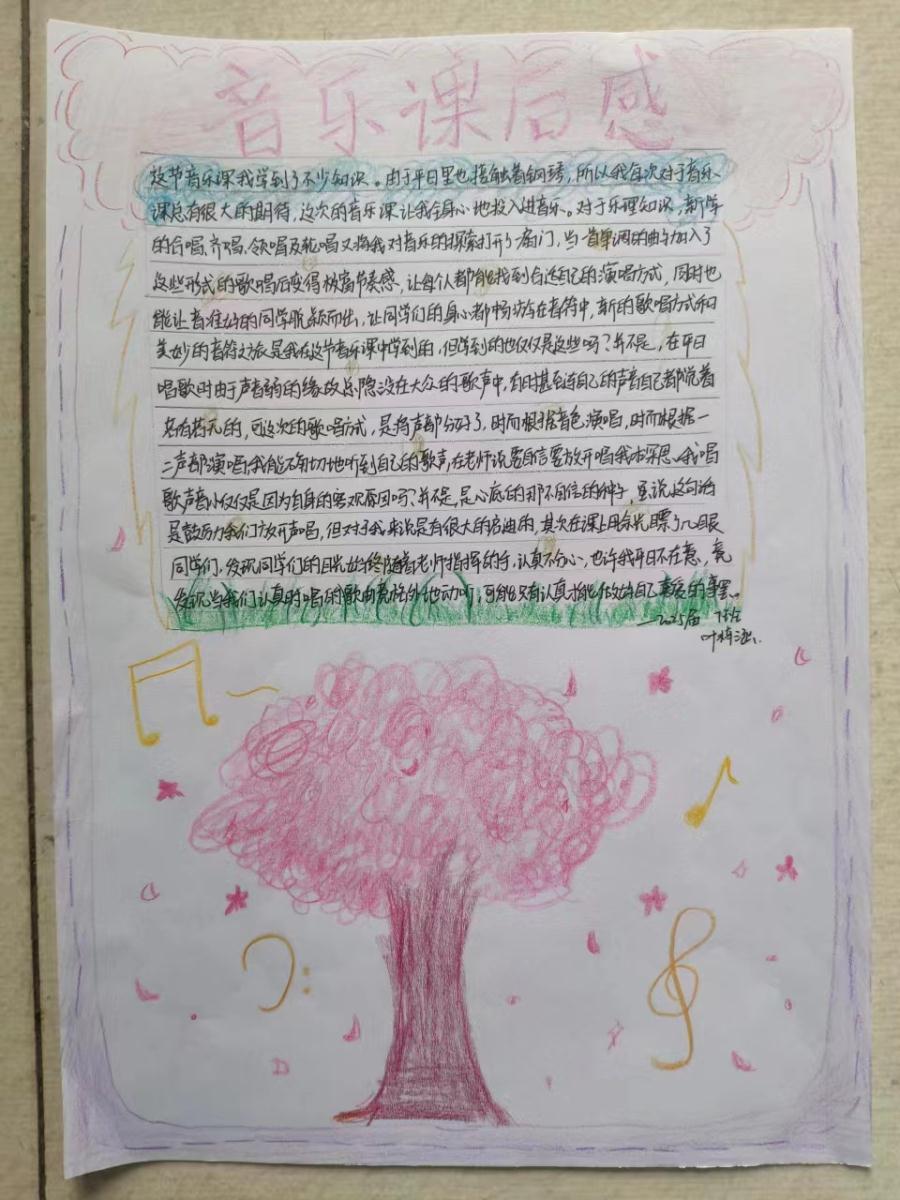 音乐课后感
这节音乐课我学到了不少知识。由于平日里也接触着钢琴，所以我每次对于音乐
课总有很大的期待，这次的音乐课让我全身心地投入进音乐。对于乐理知识，新学
的合唱、齐唱、领唱及轮唱又将我对音乐的探索打开了扇门，当一首单调的曲子加入了
这些形式的歌唱后变得极富节奏感，让每个人都能找到合适自己的演唱方式，同时也
能让音准好的同学脱颖而出，让同学们的身心都畅游在音符中，新的歌唱方式和
美妙的音符之旅是我在这节音乐课中学到的，但学到的也仅仅是这些吗？并不是，在平日
唱歌时由于声音弱的缘故总隐没在大众的歌声中，有时甚至连自己的声音自己都觉着
若有若无的，可这次的歌唱方式，是将声部分好了，时而根据音色演唱，时而根据一
二声部演唱，我能不切地听到自己的歌声，在老师说要自信要放开唱我也深思、我唱
歌声音小仅仅是因为自身的客观原因吗？并不是，是心底的那不自信的种子，虽说这句话
是鼓励我们放开声唱，但对于我来说是有很大的启迪的，其次在课上用余光瞟了几眼
同学们，发现同学们的目光始终随着老师指挥的手，认真不分心，也许我平日不在意，竟
发现当我们认真时唱的歌曲竟格外地动听，可能只有认真才能做好自己喜爱的事罢。
—2025届 7班
叶